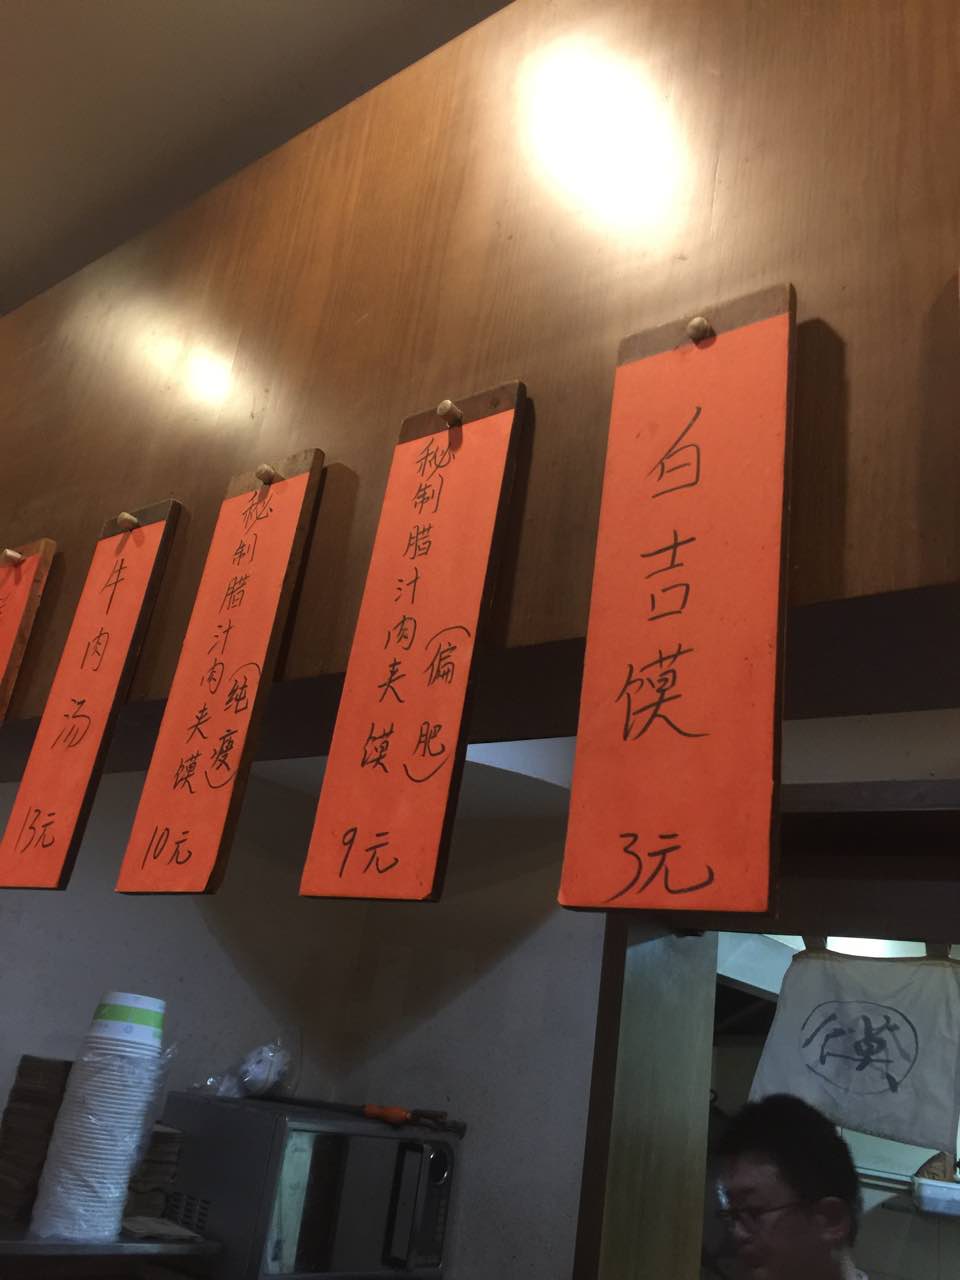 白吉馍
3元
秘制腊汁肉夹馍
(偏肥)
9元
秘制腊汁肉夹馍
(纯瘦)
10元
牛肉汤
13元
馍